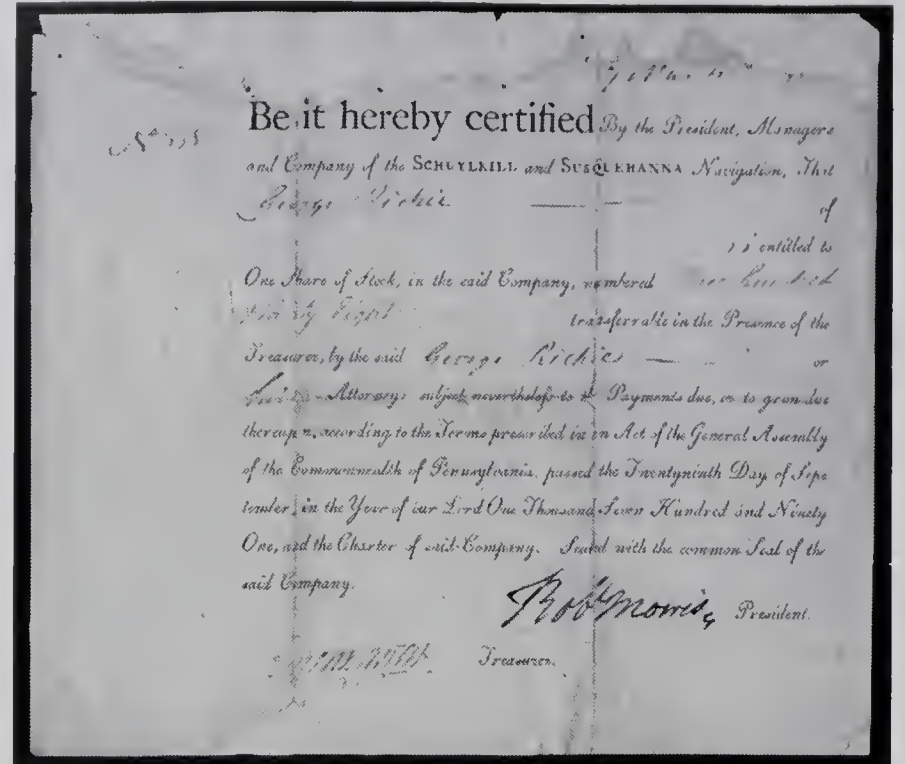 Be it hereby certified By the President, Managers
and Company of the SCHUYLKILL and SUSQUEHANNA Navigation, That
George Richie of
is entitled to
One Share of Stock, in the said Company, numbered
Eight transferrable in the Presence of the
Treasurer, by the said George Richie or
Attorney subject nevertheless to Payments due, or to grow due
thereupon, according to the Terms prescribed in an Act of the General Assembly
of the Commonwealth of Pennsylvania, passed the Twentyninth Day of Sep
tember, in the Year of our Lord One Thousand Seven Hundred and Ninety
One, and the Charter of said Company. Sealed with the common Seal of the
said Company.
Robt Morris, President.
Treasurer.